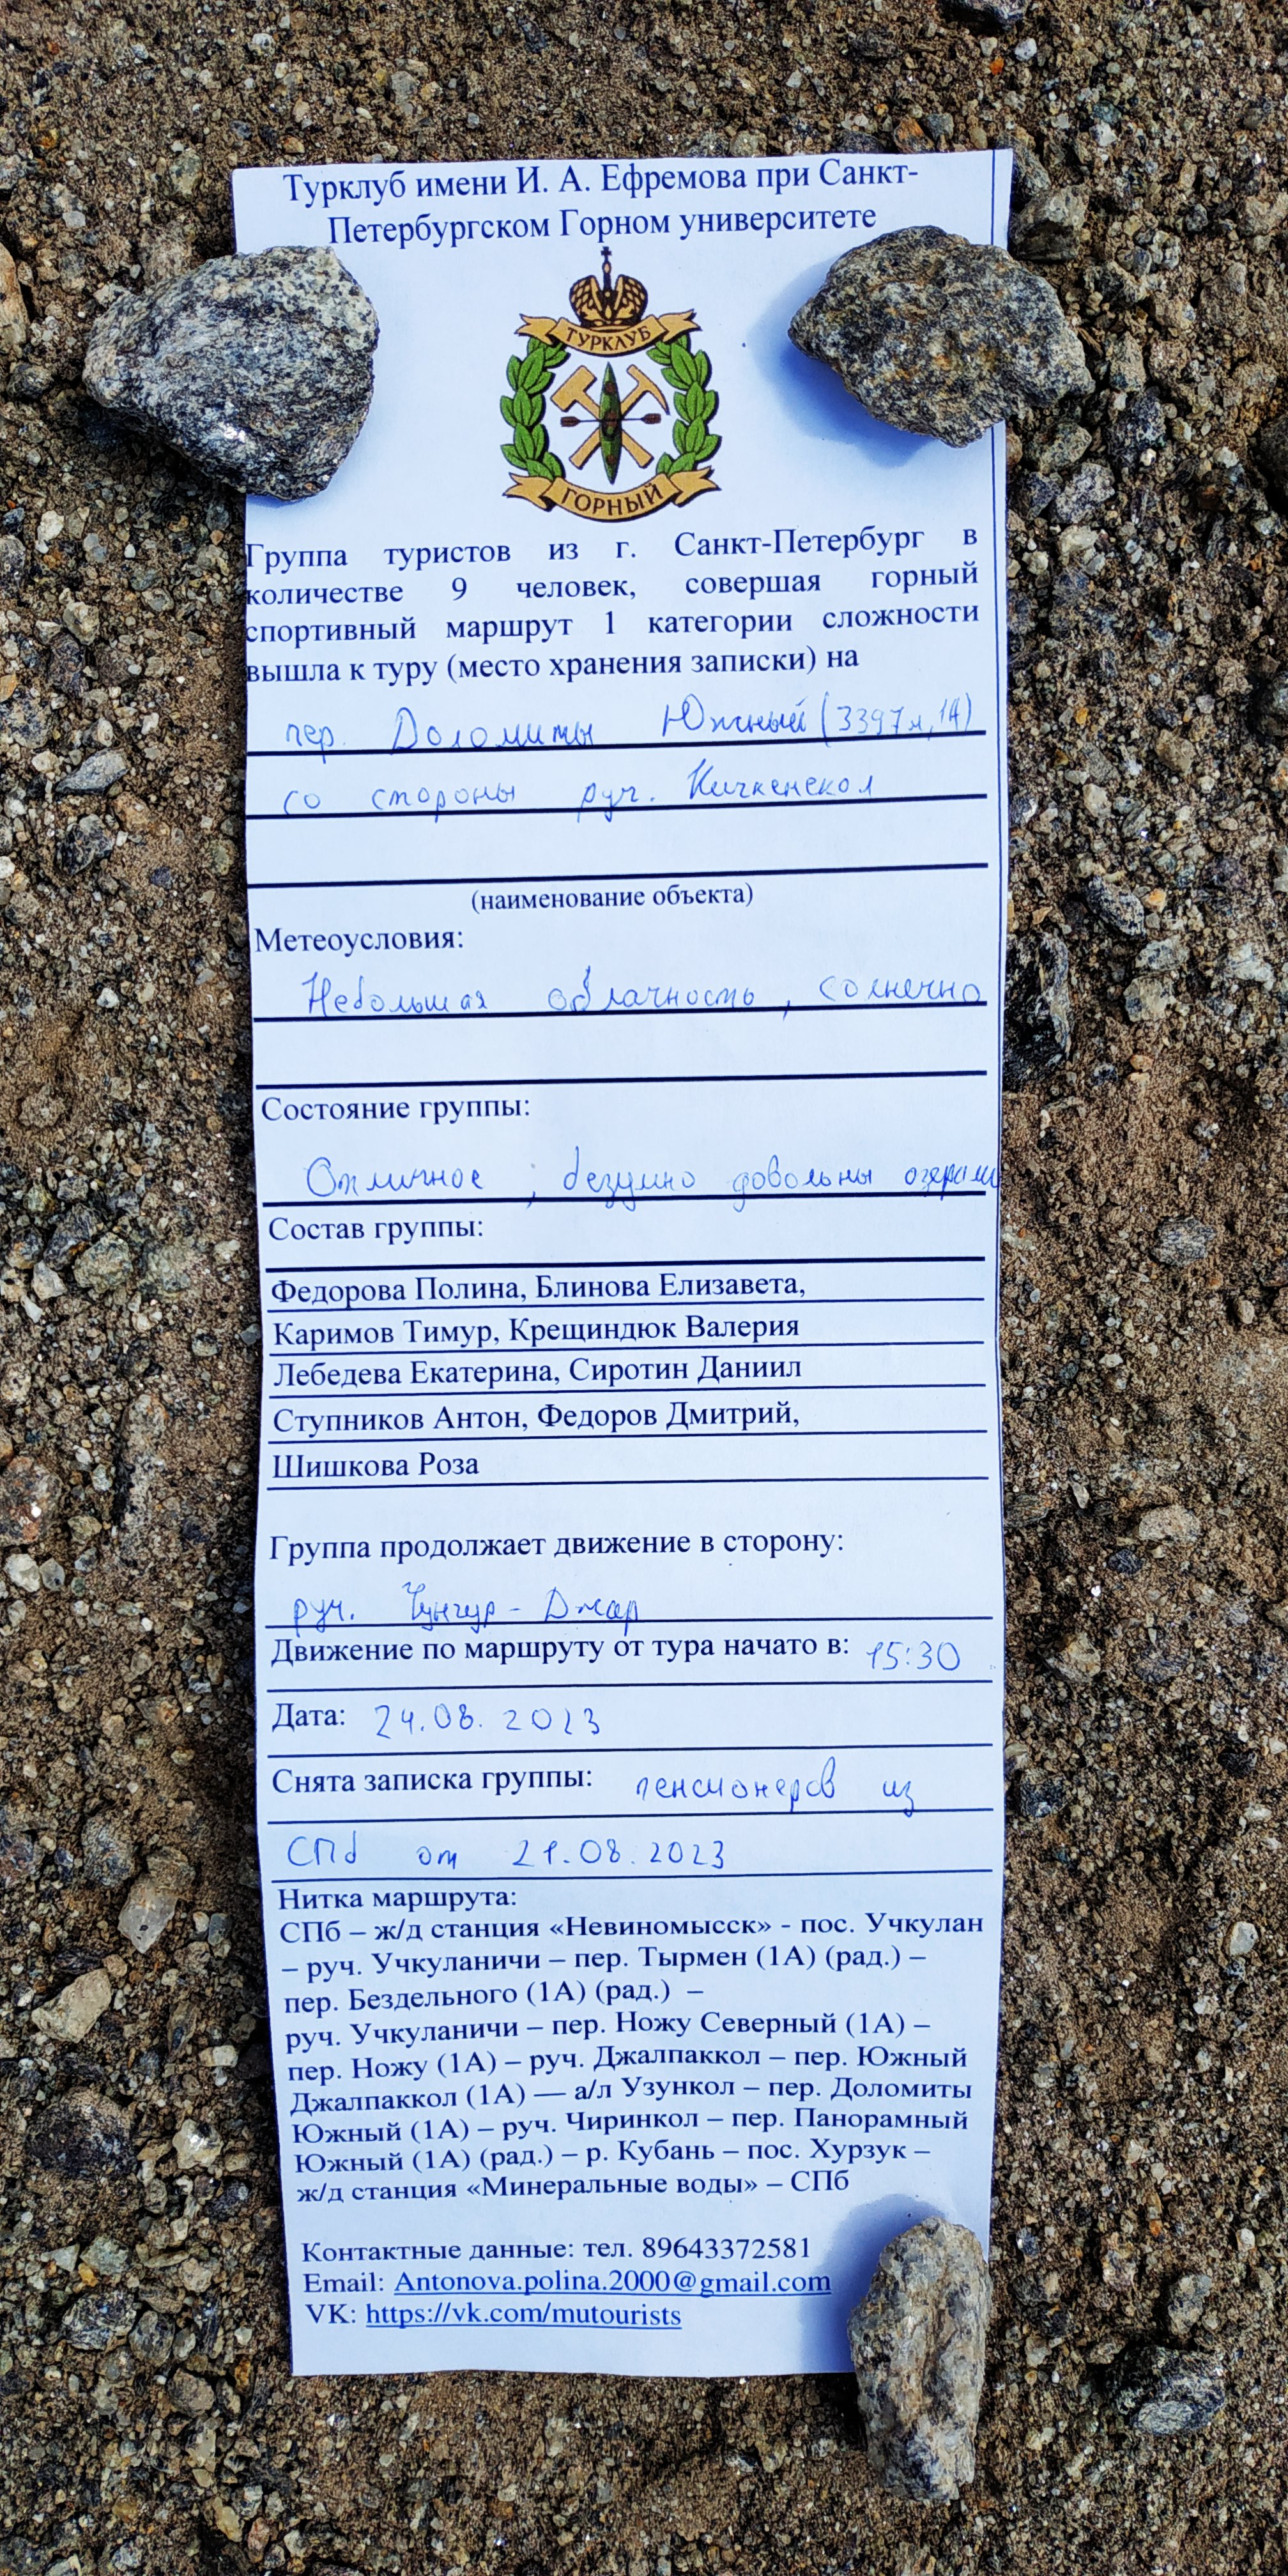 Турклуб имени И. А. Ефремова при Санкт-
Петербургском Горном университете
ТУРКЛУБ
ГОРНЫЙ
Группа туристов из г. Санкт-Петербург в
количестве 9 человек, совершая горный
спортивный маршрут 1 категории сложности
вышла к туру (место хранения записки) на
пер. Доломиты Южный (3397м, 1А)
со стороны руч. Кичкенекол
(наименование объекта)
Метеоусловия:
Небольшая облачность, солнечно
Состояние группы:
Отличное, безумно довольны озерами
Состав группы:
Федорова Полина, Блинова Елизавета,
Каримов Тимур, Крещиндюк Валерия
Лебедева Екатерина, Сиротин Даниил
Ступников Антон, Федоров Дмитрий,
Шишкова Роза
Группа продолжает движение в сторону:
руч. Чунгур-Джар
Движение по маршруту от тура начато в: 15:30
Дата: 24.08.2023
Снята записка группы: пенсионеров из
СПб от 21.08.2023
Нитка маршрута:
СПб – ж/д станция «Невиномысск» - пос. Учкулан
– руч. Учкуланичи – пер. Тырмен (1А) (рад.) –
пер. Бездельного (1А) (рад.) –
руч. Учкуланичи – пер. Ножу Северный (1А) –
пер. Ножу (1А) – руч. Джалпаккол – пер. Южный
Джалпаккол (1А) — а/л Узункол – пер. Доломиты
Южный (1А) – руч. Чиринкол – пер. Панорамный
Южный (1А) (рад.) – р. Кубань – пос. Хурзук –
ж/д станция «Минеральные воды» – СПб
Контактные данные: тел. 89643372581
Email: Antonova.polina.2000@gmail.com
VK: https://vk.com/mutourists